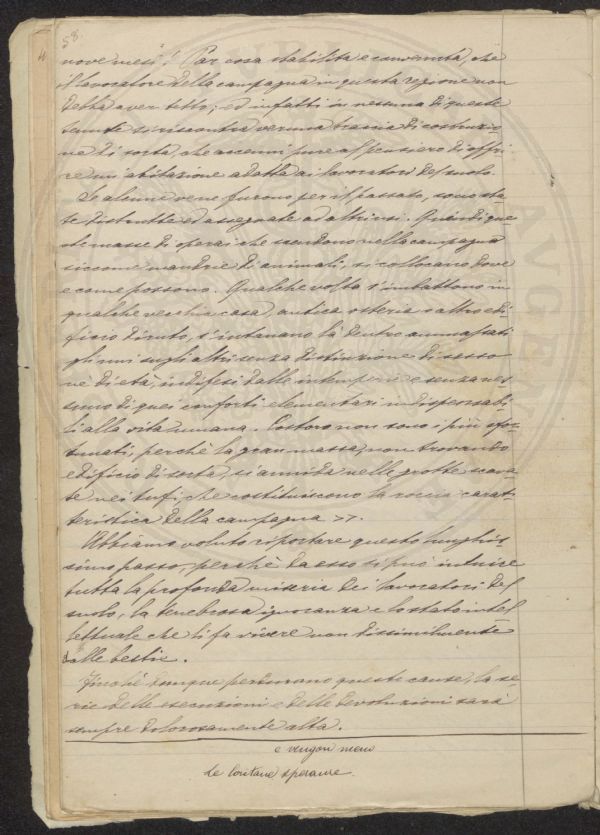 58.
nove mesi! Par cosa stabilita e convenuta, che
il lavoratore della campagna in questa regione non
debba aver tetto; ed infatti in nessuna di queste
tenute si riscontra veruna traccia di costruzio-
ne di sorta, che accenni pure al pensiero di offri-
re un'abitazione adatta ai lavoratori del suolo.
Se alcune ve ne furono per il passato, sono sta-
te distrutte ed assegnate ad altri usi. Quindi que-
ste masse di operai che scendono nella campagna
siccome mandrie di animali, si collocano dove
e come possono. Qualche volta s'imbattono in
qualche vecchia casa, antica osteria o altro edi-
ficio diruto, s'intanano là dentro ammassati
gli uni sugli altri senza distinzione di sesso
nè di età, indifesi dalle intemperie e senza nes-
suno di quei conforti elementari indispensabi-
li alla vita umana. Costoro non sono i più sfor-
tunati, perchè la gran massa, non trovando
edificio di sorta, si annida nelle grotte scava-
te nei tufi, che costituiscono la roccia carat-
teristica della campagna >>.
Abbiamo voluto riportare questo lunghis-
simo passo, perchè da esso si può intuire
tutta la profonda miseria dei lavoratori del
suolo, la tenebrosa ignoranza e lo stato intel-
lettuale che li fa vivere non dissimilmente
dalle bestie.
Finchè dunque perdurano queste cause, la se-
rie delle esecuzioni e delle devoluzioni sarà
sempre dolorosamente alta.
e vengon meno
le lontane speranze.